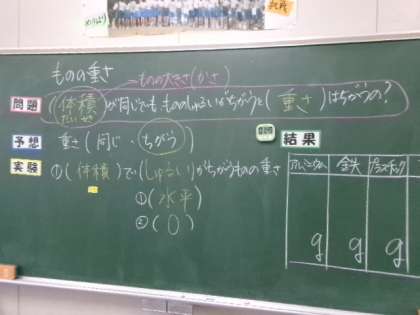 ものの重さ
ものの大きさ(かさ)
問題
(体積)が同じでも、もののしゅるいがちがうと(重さ)はちがうの?
たいせき
予想
重さ(同じ・ちがう)
実験
①(体積)で(しゅるい)がちがうものの重さ
①(水平)
②(0)
結果
アルミニウム 鉄 プラスチック
g g g